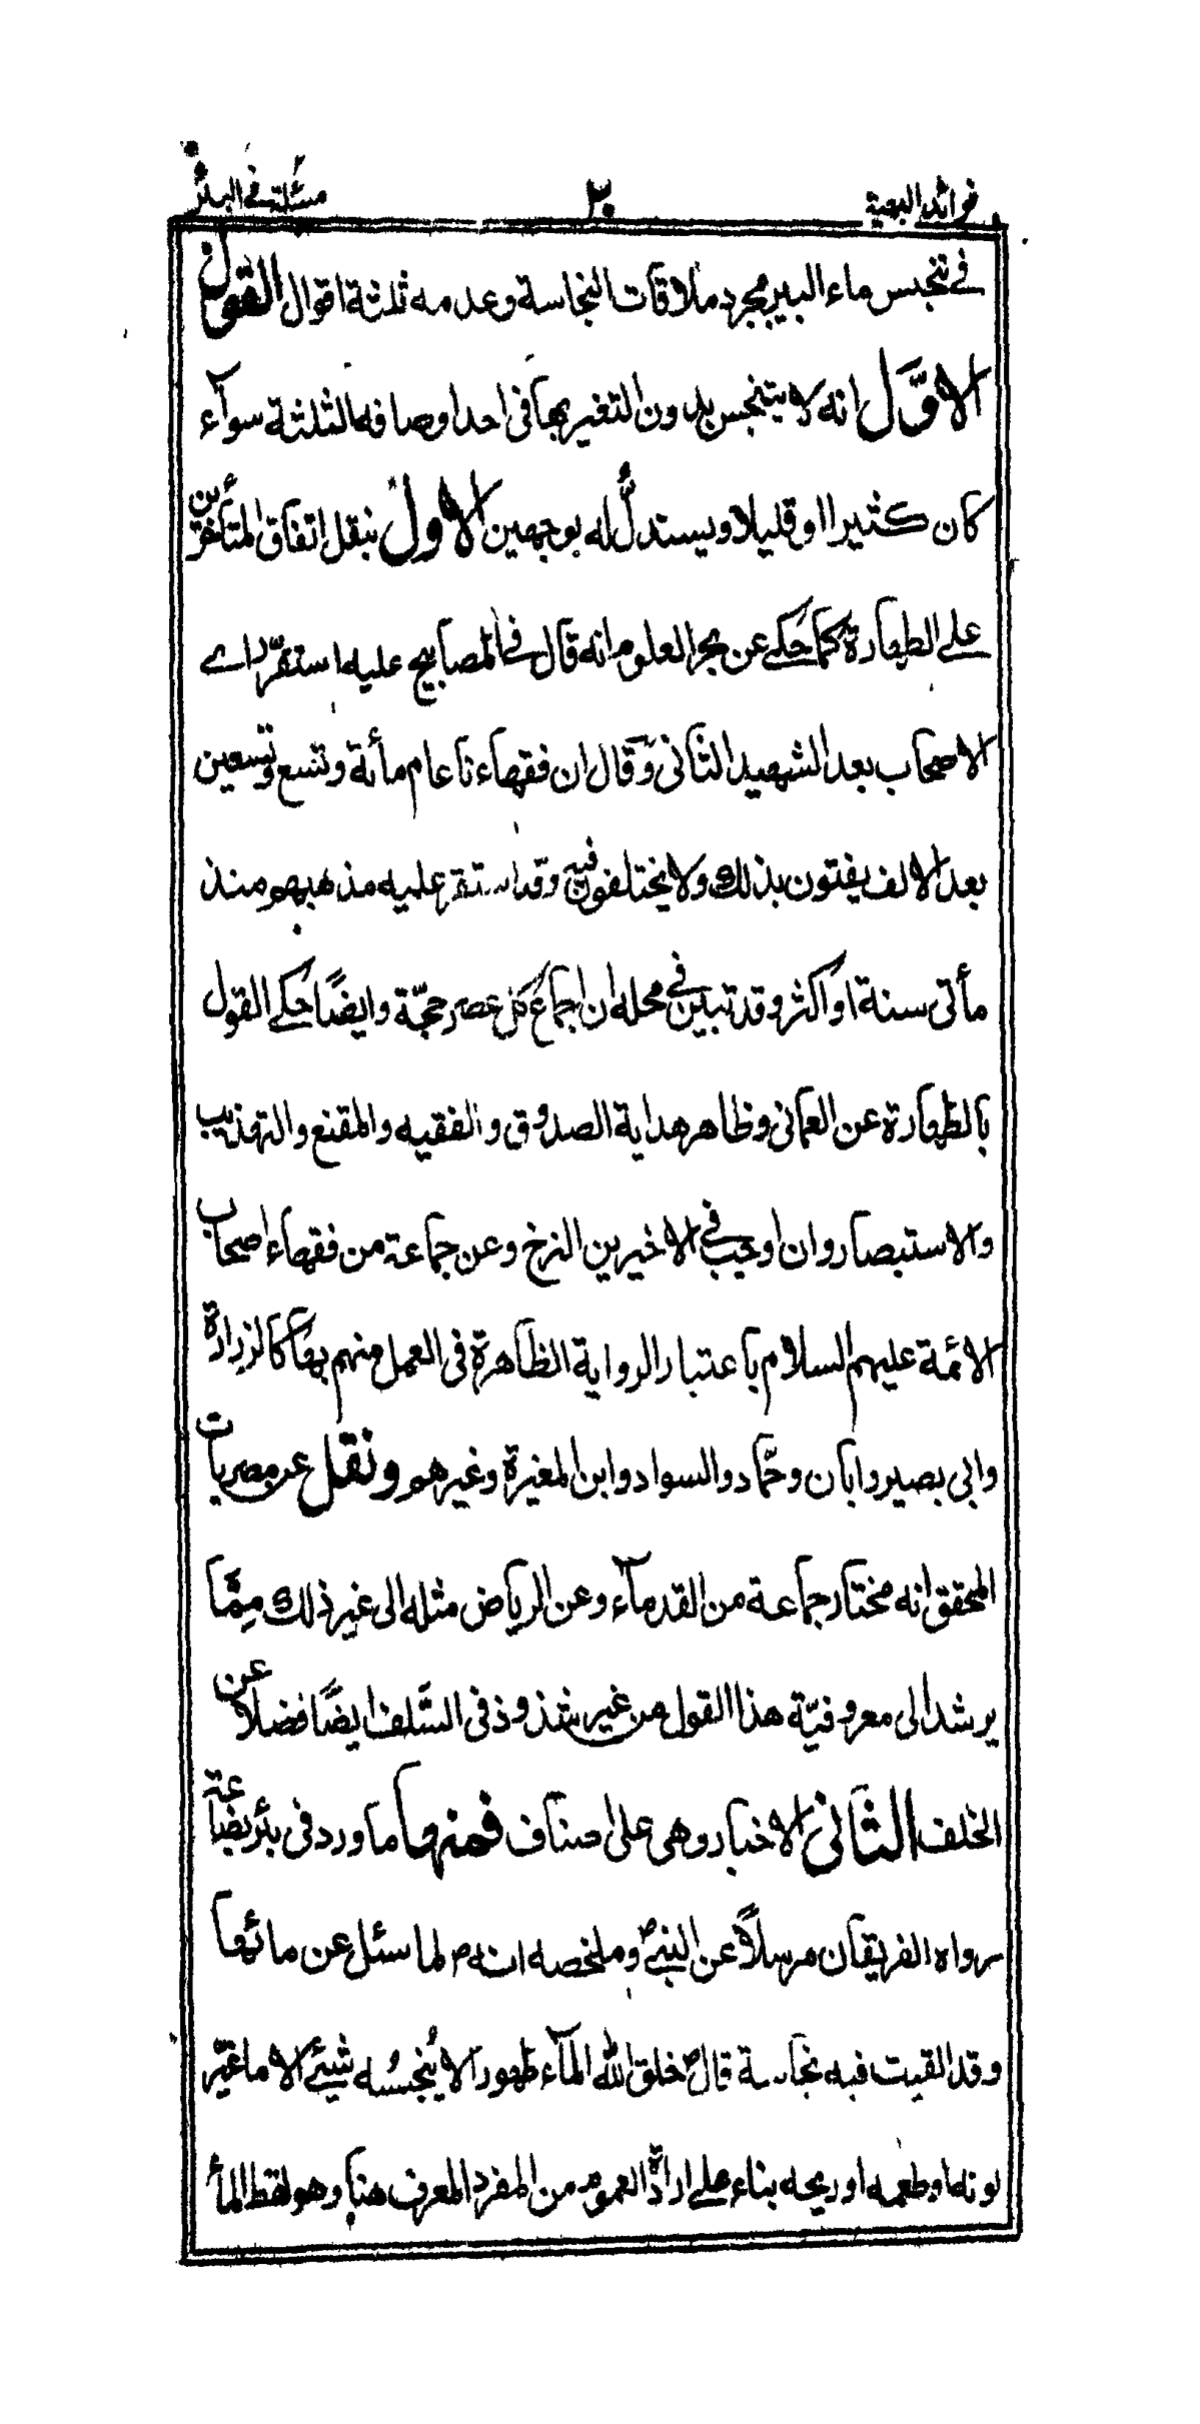 فوائد البهية ٣٠ مسئلة في البئر
في تنجس ماء البير بمجرد ملاقات النجاسة وعدمه ثلثة اقوال القول
الاوَّل انه لا يتنجس بدون التغير بها في احد اوصافه الثلثة سوآء
كان كثيرا او قليلا ويستدلُّ له بوجهين الاول بنقل اتفاق المتأخرين
على الطهارة كما حكي عن بحر العلوم انه قال في المصابيح عليه استقرّ راي
الاصحاب بعد الشهيد الثاني وقال ان فقهاءنا عام مأئة وتسع وتسعين
بعد الالف يفتون بذلك ولا يختلفون فيه وقد استقر عليه مذهبهم منذ
مأتي سنة او اكثر وقد تبين في محله ان اجماع كل عصر حجّة وايضًا حكي القول
بالطهارة عن العماني وظاهر هداية الصدوق والفقيه والمقنع والتهذيب
والاستبصار وان اوجب في الاخيرين النزح وعن جماعة من فقهاء اصحاب
الائمة عليهم السلام باعتبار الرواية الظاهرة في العمل منهم بها كالزرارة
وابي بصير وابان وحمّاد والسواد وابن المغيرة وغيرهم ونقل عن مصريات
المحقق انه مختار جماعة من القدمآء وعن الرياض مثله الى غير ذلك مِمّا
يرشد الى معروفيّة هذا القول من غير شذوذ في السَّلف ايضًا فضلا عن
الخلف الثاني الاخبار وهي على اصناف فمنها ما ورد في بئر بضاعة
رواه الفريقان مرسلاً عن النبيّ ص وملخصه انه ص لما سئل عن مائها
وقد القيت فيه نجاسة قال ص خلق الله المآء طهورا لا يُنجسُه شيئ الا ما غيّر
لونه او طعمه او ريحه بناء على ارادة العموم من المفرد المعرف هنا وهو لفظ المأ